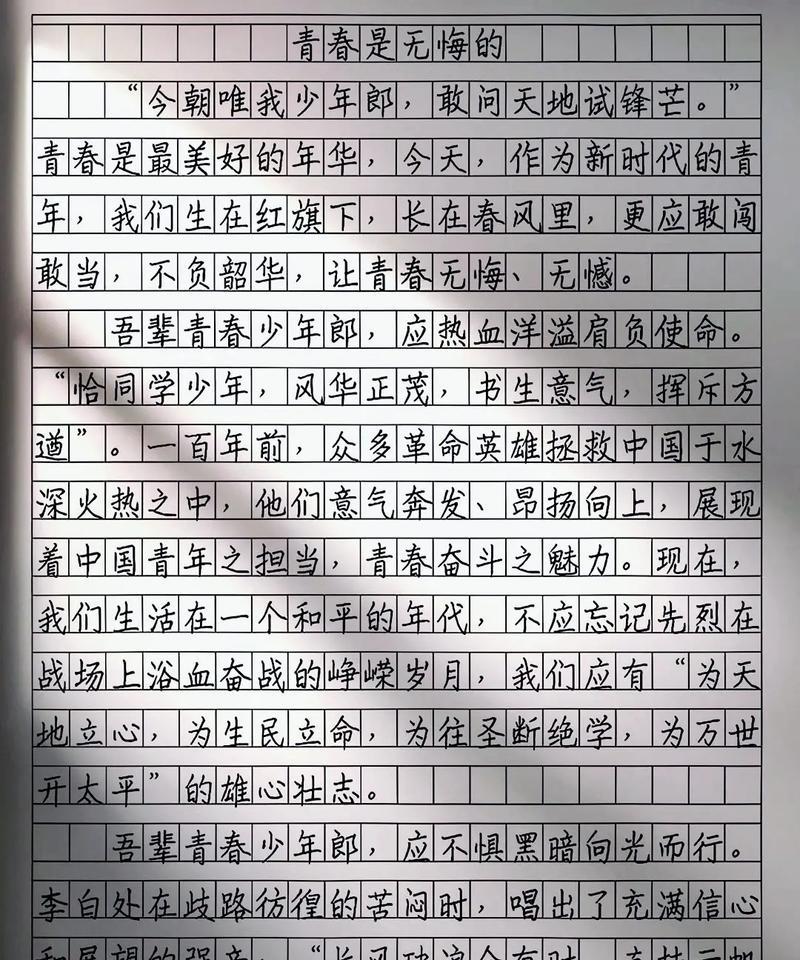 青春是无悔的
“今朝唯我少年郎，敢问天地试锋芒。”
青春是最美好的年华，今天，作为新时代的青
年，我们生在红旗下，长在春风里，更应敢闯
敢当，不负韶华，让青春无悔、无憾。
吾辈青春少年郎，应热血洋溢肩负使命。
“恰同学少年，风华正茂，书生意气，挥斥方
遒”。一百年前，众多革命英雄拯救中国于水
深火热之中，他们意气奔发、昂扬向上，展现
着中国青年之担当，青春奋斗之魅力。现在，
我们生活在一个和平的年代，不应忘记先烈在
战场上浴血奋战的峥嵘岁月，我们应有“为天
地立心，为生民立命，为往圣断绝学，为万世
开太平”的雄心壮志。
吾辈青春少年郎，应不惧黑暗向光而行。
李白处在歧路彷徨的苦闷时，唱出了充满信心
和展望的强音：“长风破浪会有时，直挂云帆